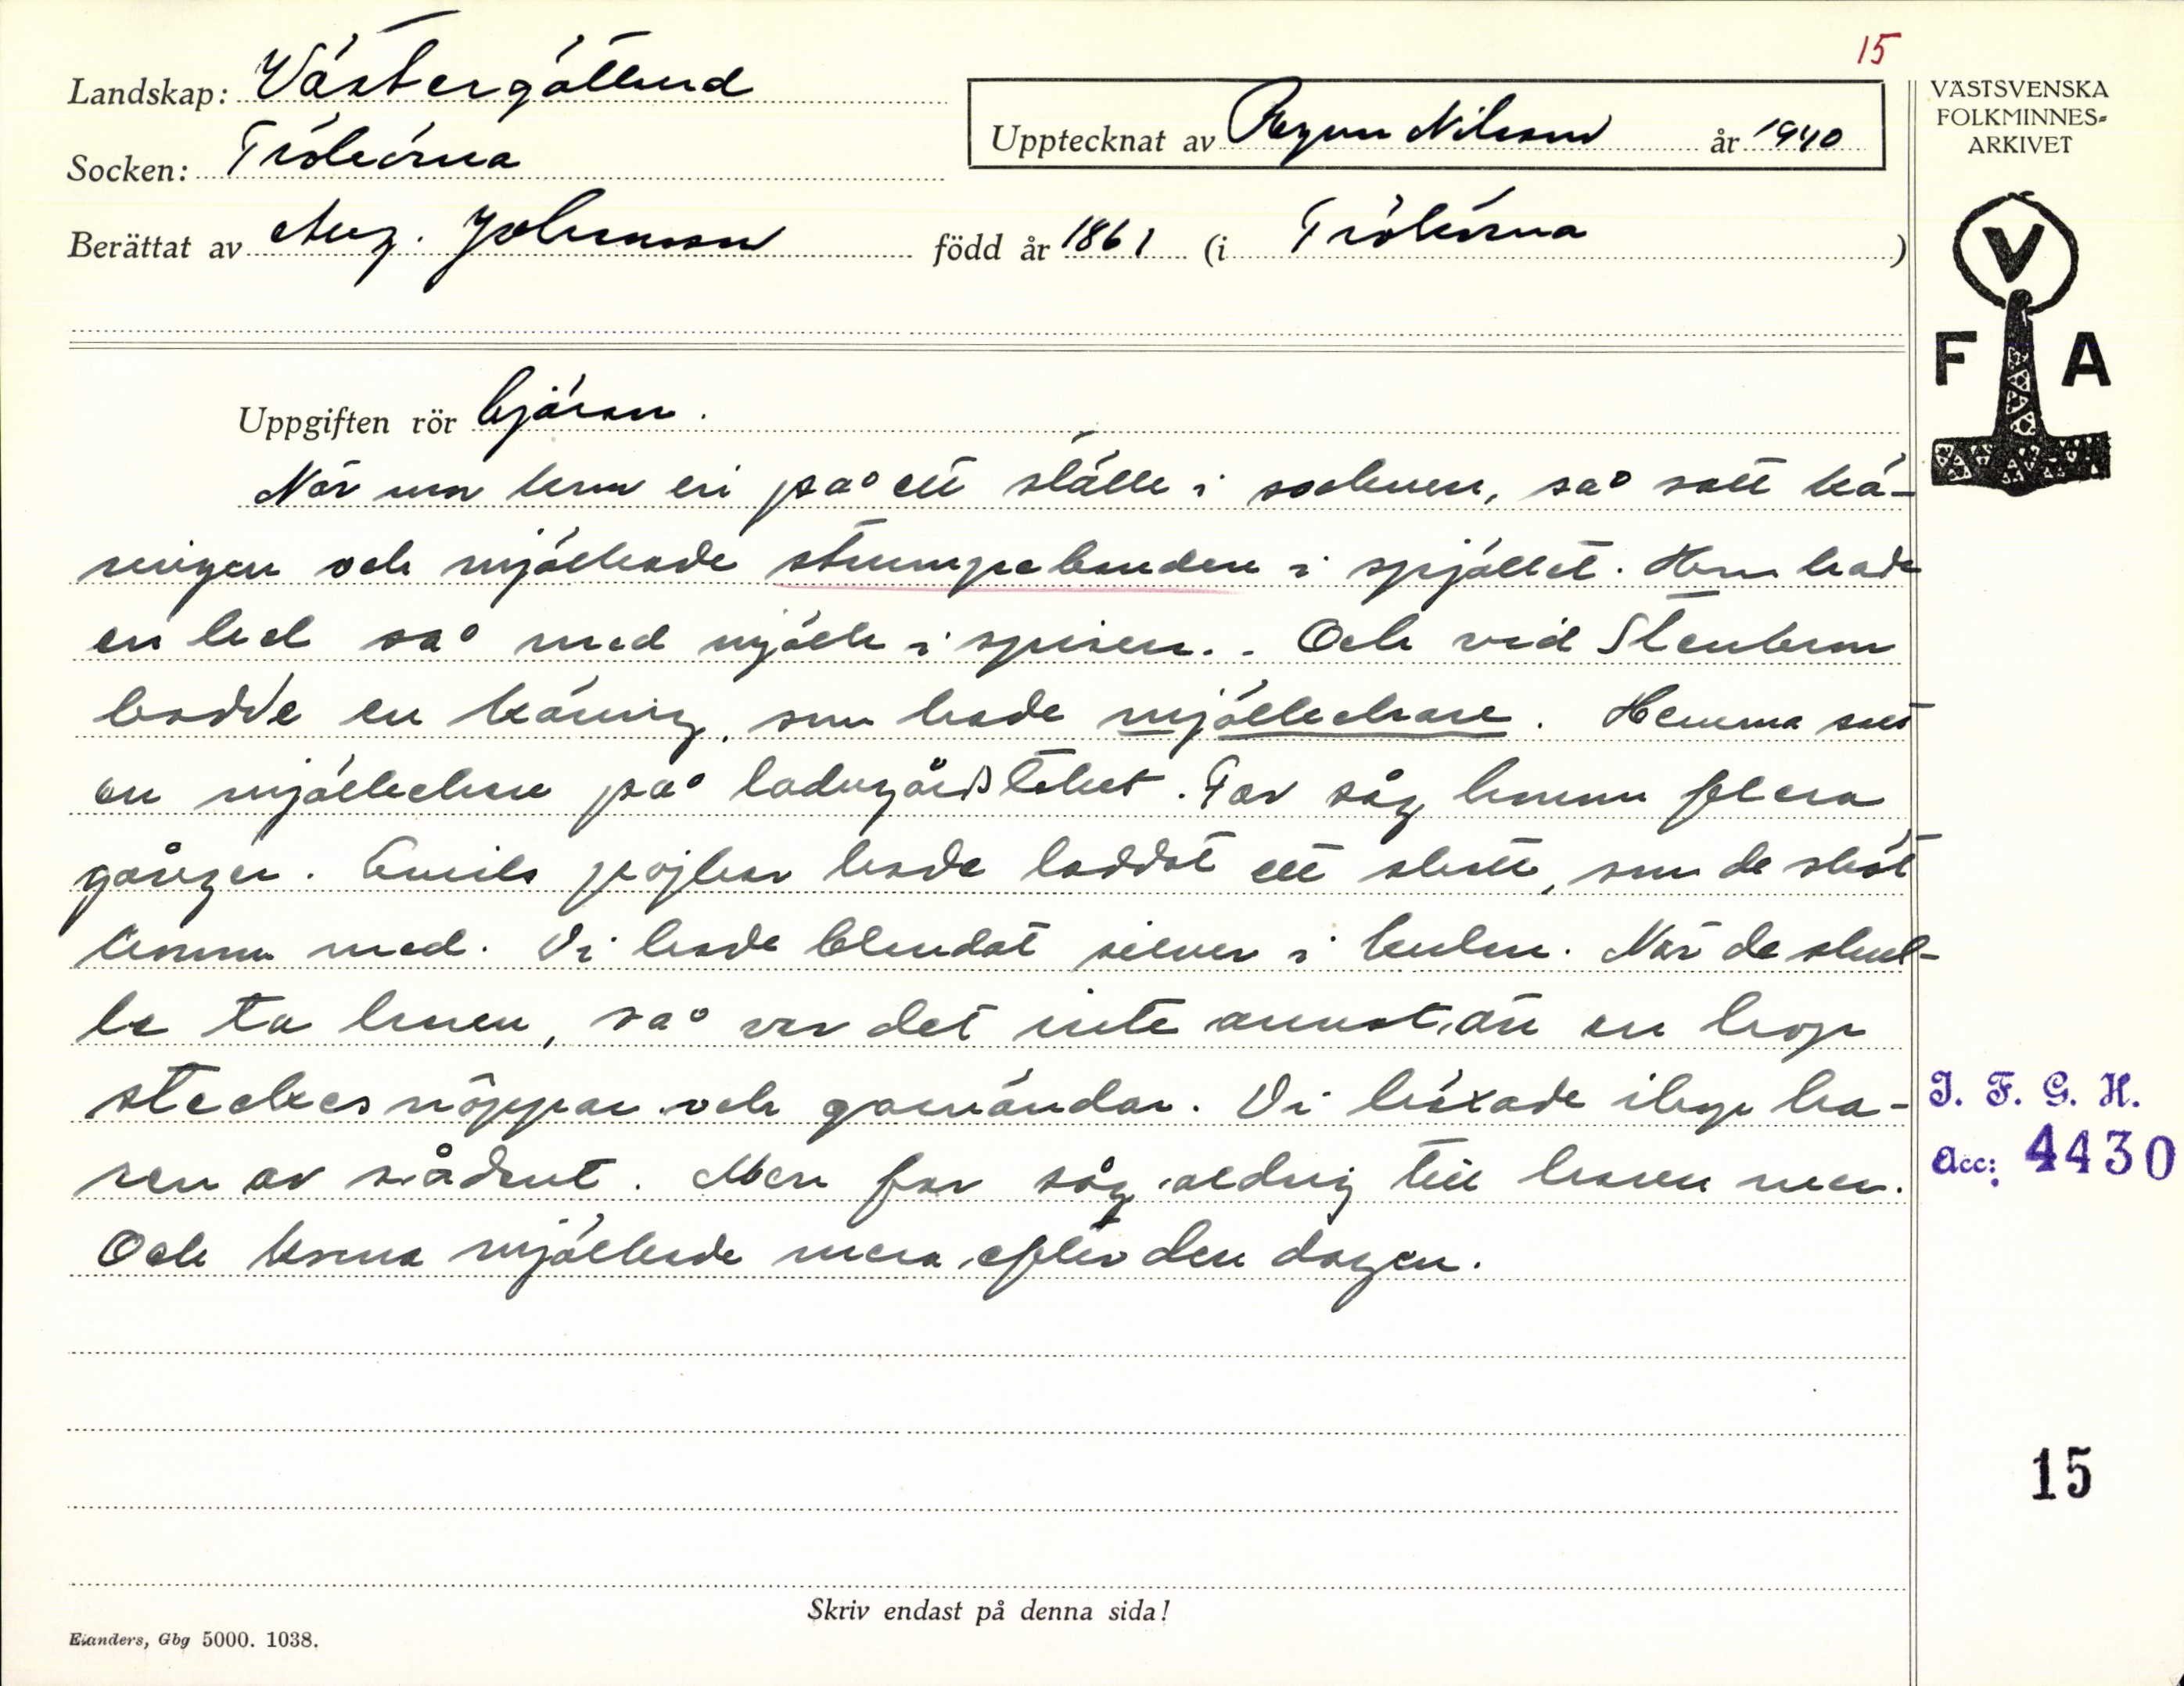 15
Landskap: Västergötland
VÄSTSVENSKA
FOLKMINNES-
ARKIVET
Upptecknat av Ragnar Nilsson år 1940
Socken: Trökörna
Berättat av Aug. Johansson född år 1861 (i Trökörna)
V
F A
Uppgiften rör bjäran.
När man kom in på ett ställe i socknen, så satt kä-
ringen och mjölkade strumpebanden i spjället. Hon hade
en hel så med mjölk i spisen. Och vid Stenbron
bodde en käring, som hade mjölkehare. Hemma satt
en mjölkehare på ladugårdstaket. Far såg honom flera
gånger. Emils pojkar hade laddat ett skott, som de sköt
honom med. Vi hade blandat silver i kulan. När de skul-
le ta haren, så var det inte annat än en hop
steckesnöppar och garnändar. Vi häxade ihop ha-
ren av sådant. Men far såg aldrig till haren mer.
Och korna mjölkade mera efter den dagen.
I. F. G. H.
Acc: 4430
15
Skriv endast på denna sida!
Elanders, Gbg 5000. 1038.